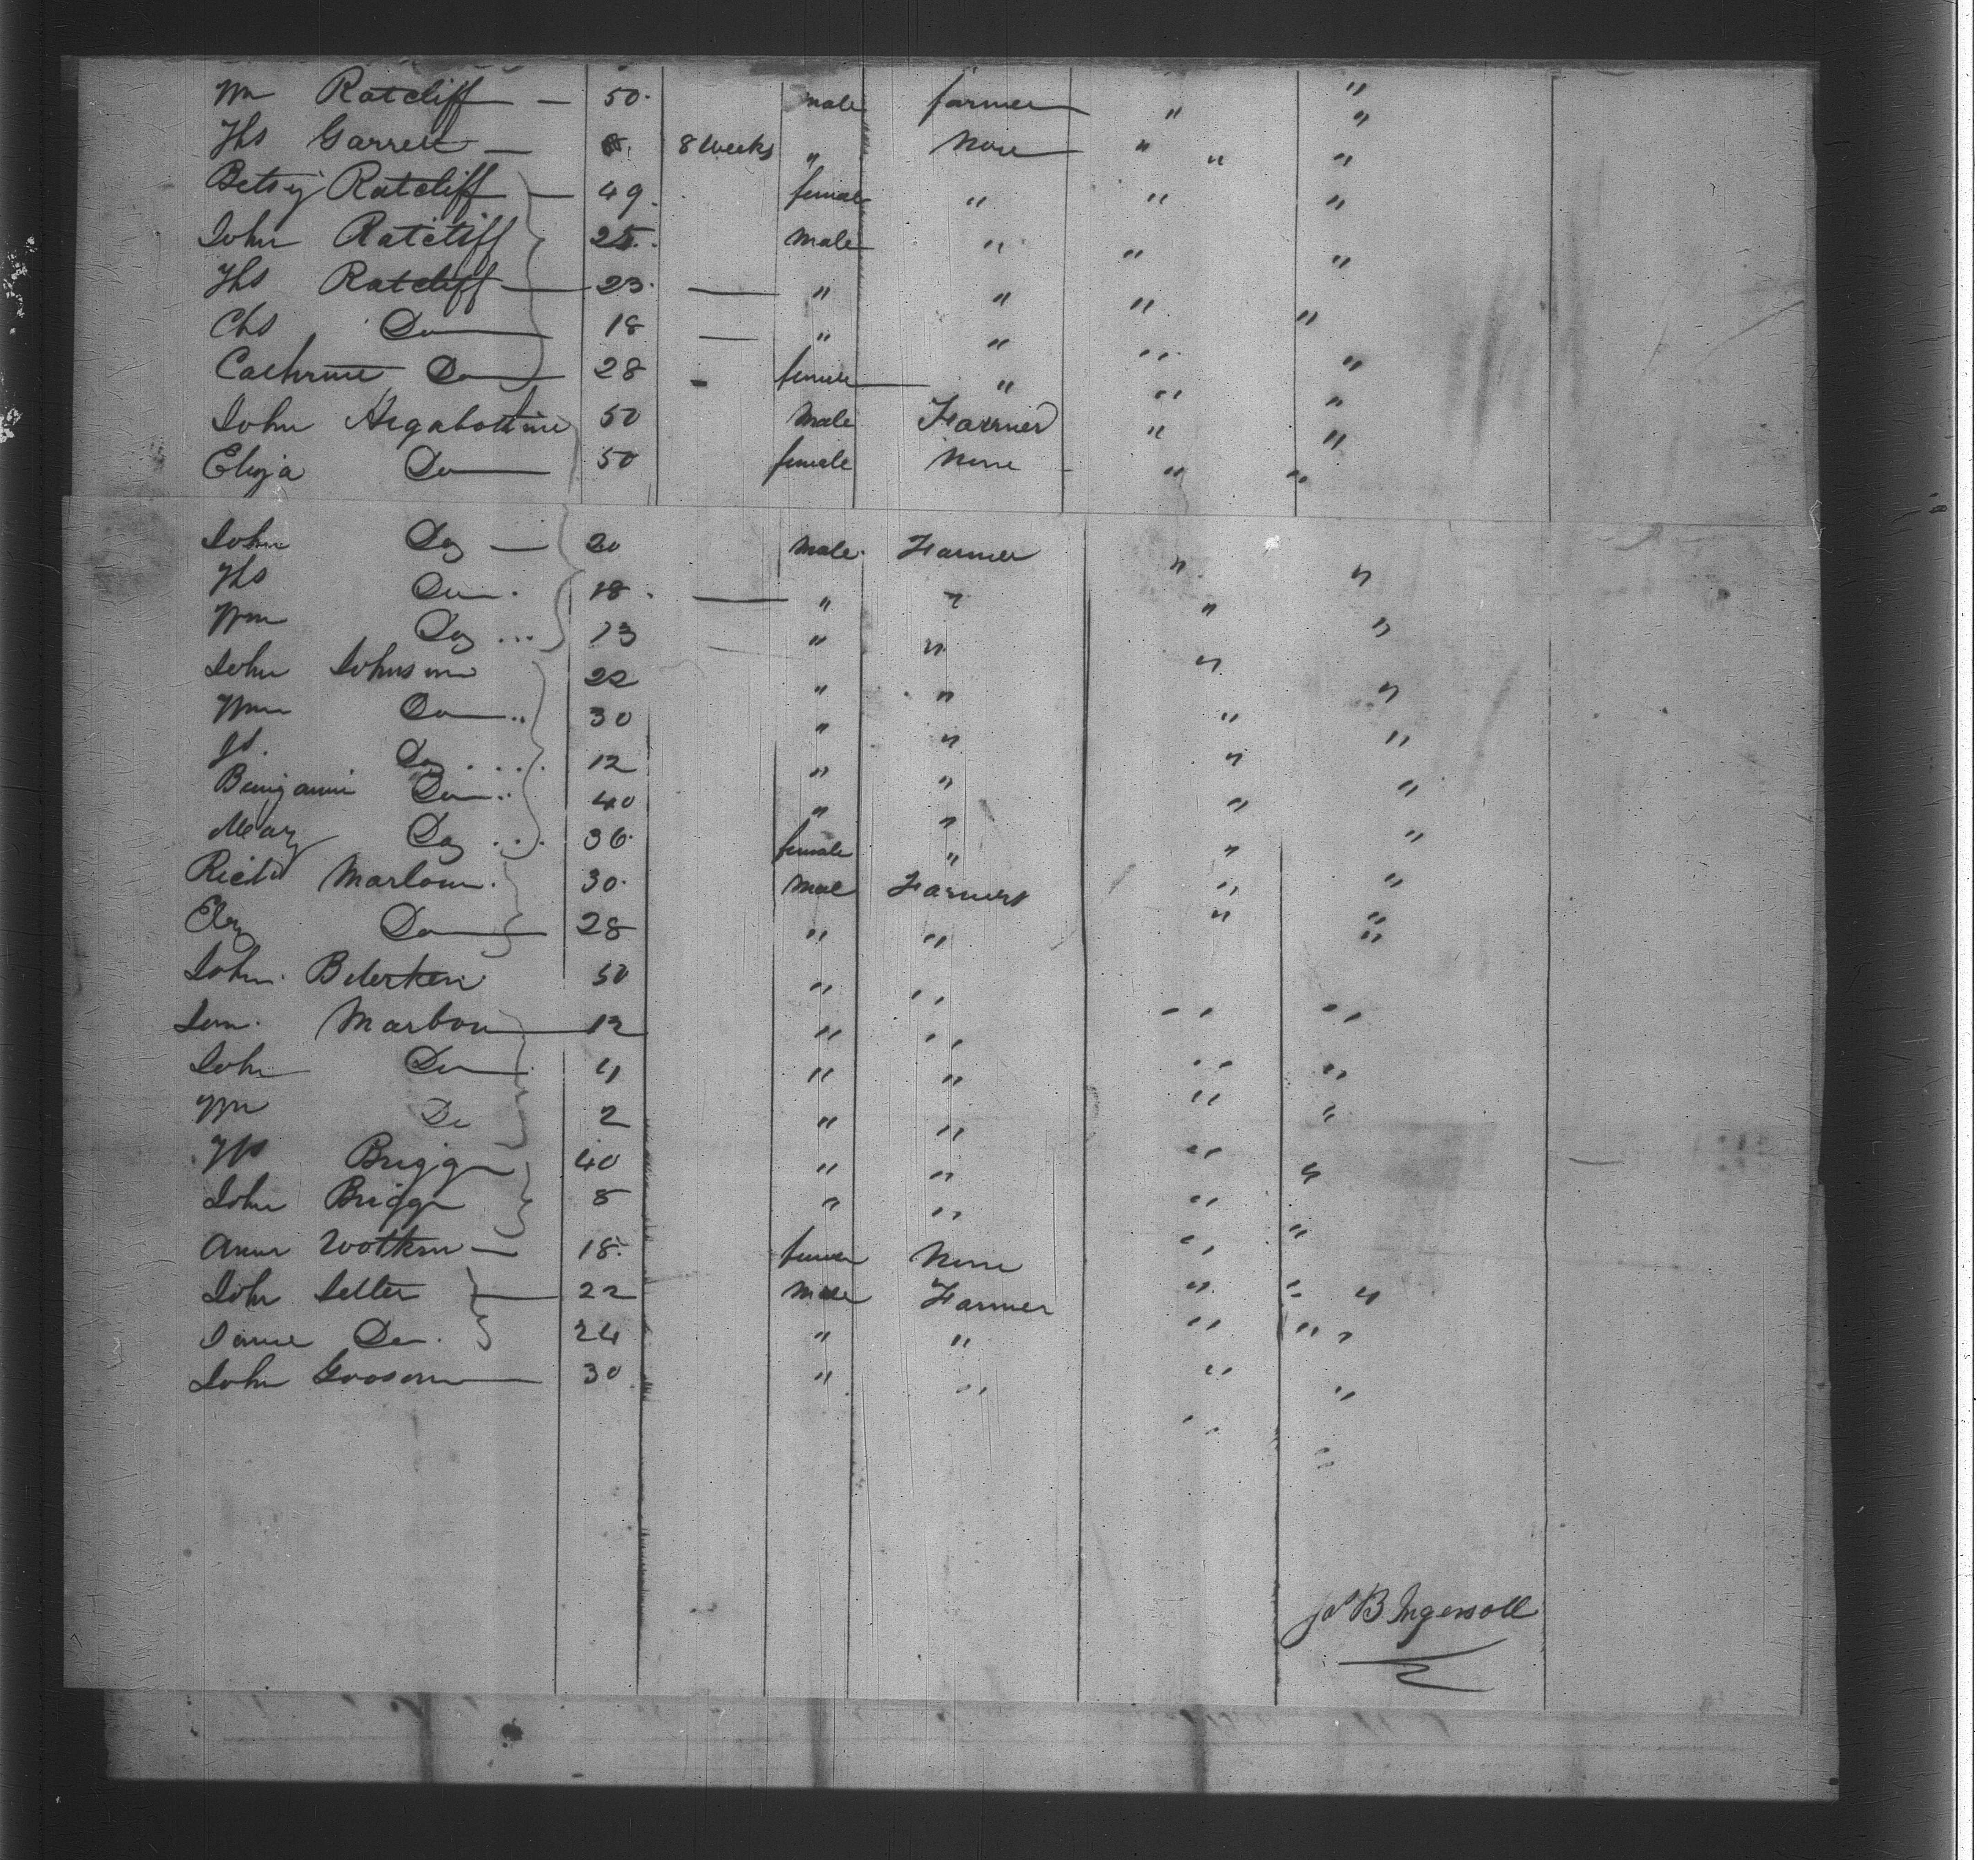 Wm Ratcliff — 50. male farmer " "
Ths Garrett — 8 weeks " None " " "
Betsy Ratcliff — 49. female " " "
John Ratcliff 25. male " " "
Ths Ratcliff — 23. — " " " "
Chs Do — 18 — " " " "
Cathrine Do — 28 - female — " " "
John Higabottine 50 Male Farmer " "
Eliza Do — 50 female None " "
John Do — 20 Male. Farmer " "
Ths Do . 18 . — " " " "
Wm Do ... 13 " " " "
John Johnson 22 " " " "
Wm Do .. 30 " " " "
Js. Do .... 12 " " " "
Benjamin Do .. 40 " " " "
Mary Do ... 36. female " " "
Richd Marlow. 30. Male Farmers " "
Do — 28 " " " "
John. 50 " " " "
— 12 " " " "
John Do 4 " " " "
Wm Do 2 " " " "
Briggs 40 " " " "
John Briggs 8 " " " "
Anne — 18. female None " "
John 22 Male Farmer " " "
Do. 24 " " " " "
John — 30 " " " "
Js B Ingersoll